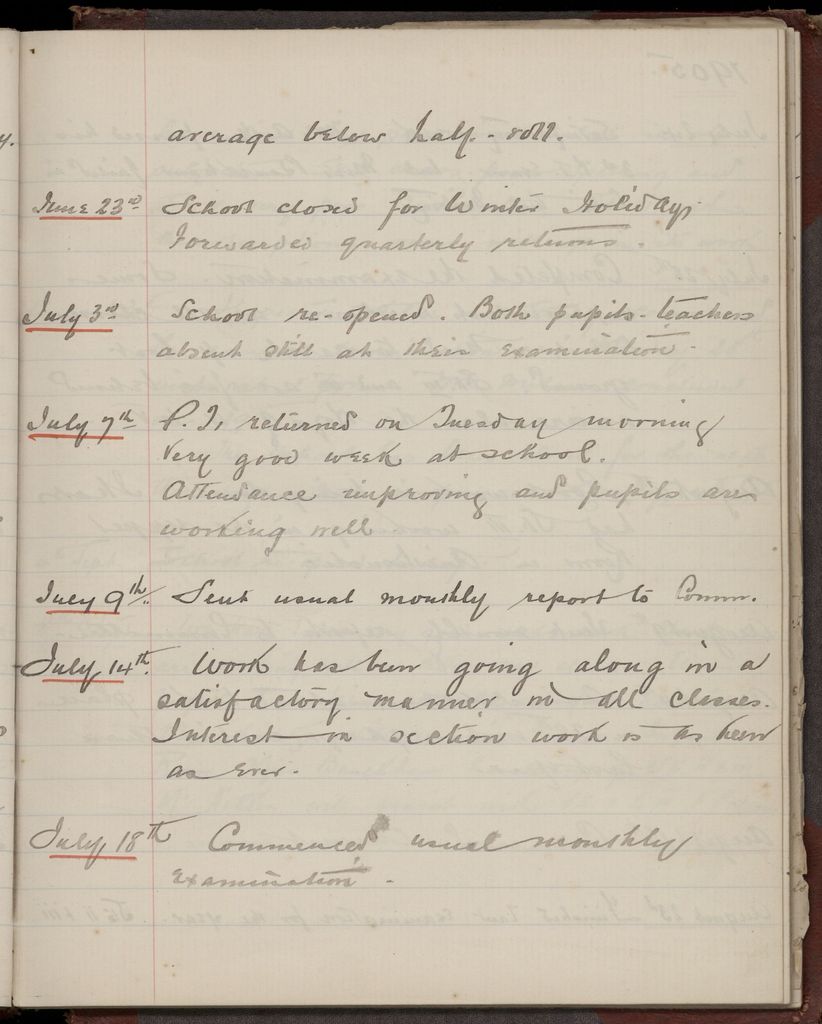 average below half-roll.
June 23rd School closed for Winter Holidays
Forwarded quarterly returns.
July 3rd School re-opened. Both pupil-teachers
absent still at their examination.
July 7th P.T. returned on Tuesday morning
Very good week at school.
Attendance improving and pupils are
working well
July 9th. Sent usual monthly report to Comm.
July 14th. Work has been going along in a
satisfactory manner in all classes.
Interest in section work is as keen
as ever.
July 18th Commenced usual monthly
examination.